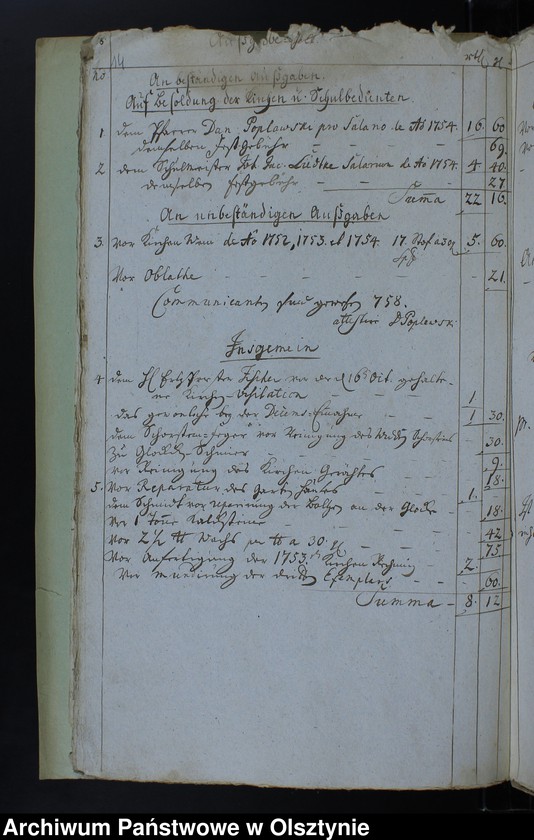 14
No
An beständigen Außgaben.
Auf Besoldung der Kirchen u. Schulbedienten
1 dem Pfarrer Dan. Poplawski pro Salario de Ao 1754. 16. 60
demselben Festgebühr 69.
2 dem Schulmeister Joh. Jac. Liedtke Salarium de Ao 1754. 4. 40.
demselben Festgebühr 27
Summa 22 16.
An unbeständigen Außgaben
3. Vor Kirchen Wein de Ao 1752, 1753. et 1754 17. Stof a 30 5. 60.
Vor Oblathe 21.
Communicanten sind gewesen 758.
attestire D Poplawski
Insgemein
4 dem Fischer 16 Oct. gehalte-
ne Kirchen-Visitation 1
das gewönliche bey der Decems-Einnahme 1 30.
dem Schorstein-Feger vor Reinigung des Schorsteins 30.
Zu Glocken-Schmier 9.
vor Reinigung des Kirchen 18.
5. Vor Reparatur des 1.
dem Schmidt vor der Bolzen an der Glocke 18.
vor 1 Tonne 42
Vor 2 1/2 ℔ Wachs pro ℔ a 30. 75.
Vor Anfertigung der 1753. Kirchen Rechnung 2.
Vor Mundirung der dritten Exemplars 60.
Summa 8. 12
Archiwum Państwowe w Olsztynie